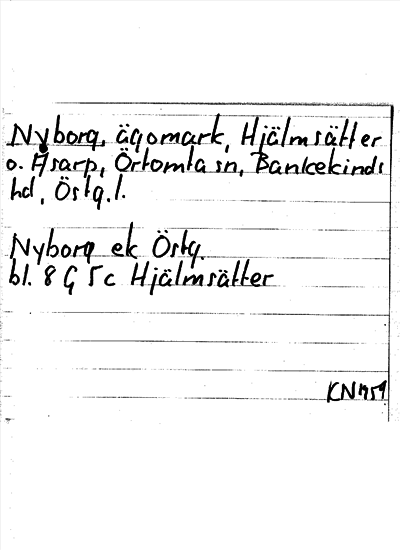 Nyborg, ägomark, Hjälmsätter
o. Åsarp, Örtomta sn, Bankekinds
hd, Östg.l.
Nyborg ek Östg.
bl. 8 G 5c Hjälmsätter